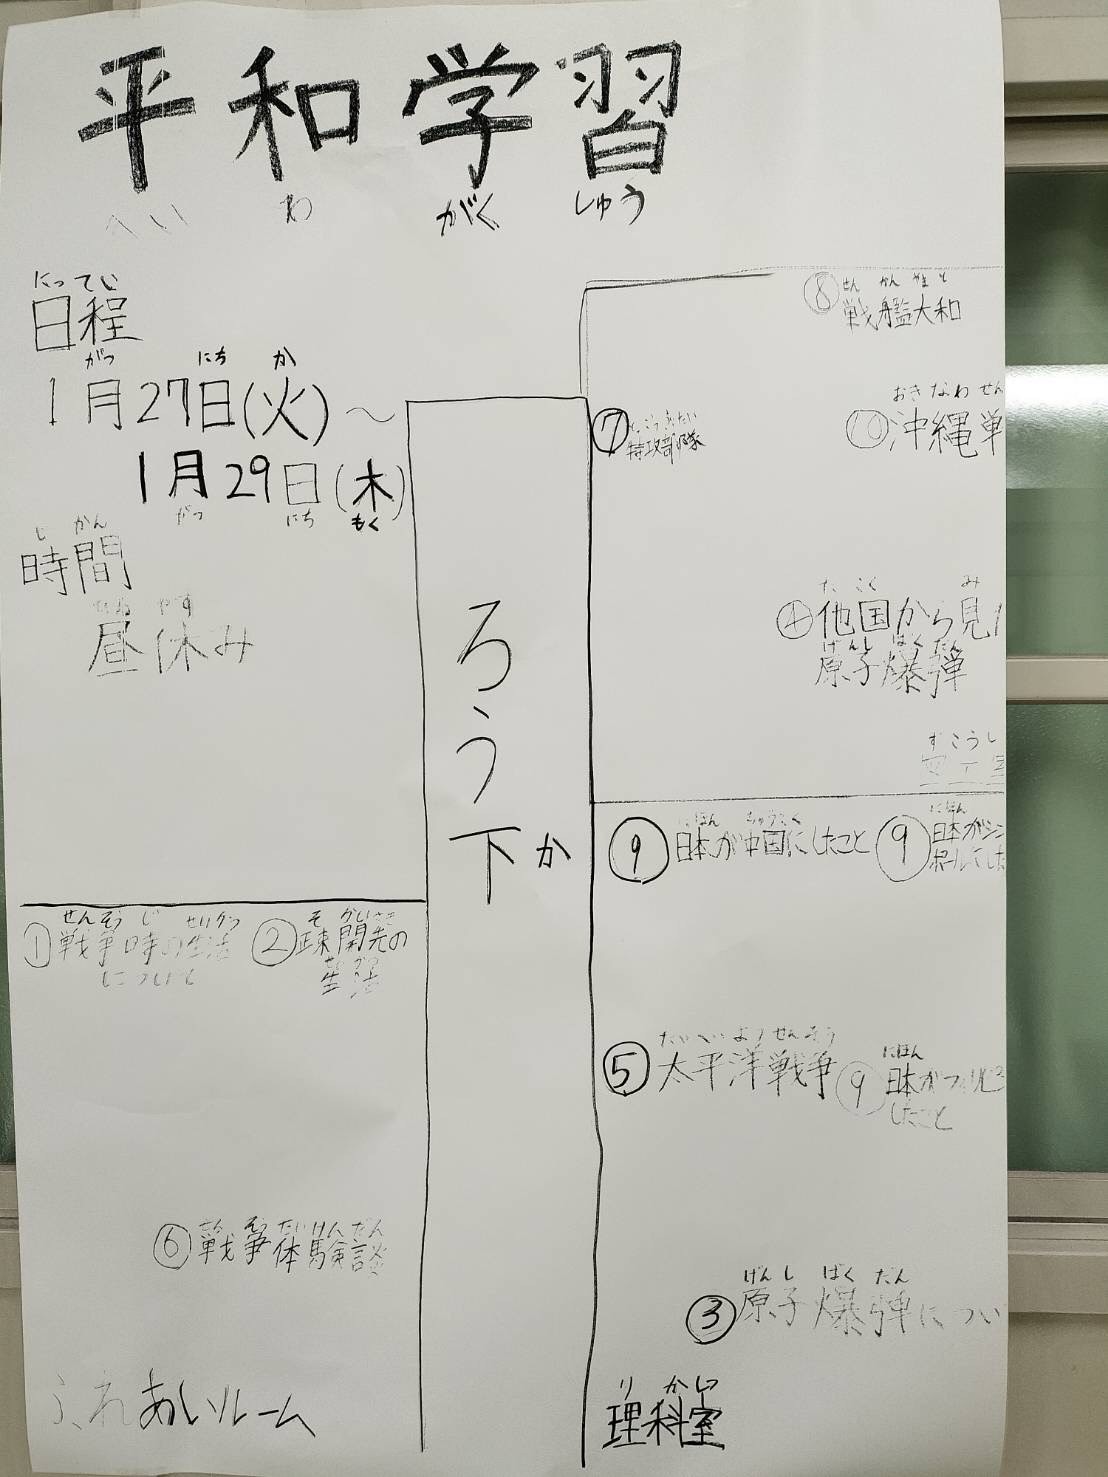 平和学習
へい わ がく しゅう
にってい
日程
がつ にち か
1月27日(火)～
1月29日(木)
がつ にち もく
じ かん
時間
ひる やす
昼休み
ろう下
か
せん かん やま と
⑧戦艦大和
おき なわ せん
⑩沖縄戦
とっこうぶたい
⑦特攻部隊
た こく み
④他国から見
げんし ばくだん
原子爆弾
ずこうし
にほん ちゅうごく
⑨日本が中国にしたこと
にほん
⑨日本がシン
ポールにした
せんそう じ せいかつ
①戦争時の生活
について
そ かいさき
②疎開先の
せい かつ
生活
たいへいようせんそう
⑤太平洋戦争
にほん
⑨日本がフィリピン
したこと
せん そう たいけんだん
⑥戦争体験談
げんし ばく だん
③原子爆弾につい
ふれあいルーム
り かしつ
理科室